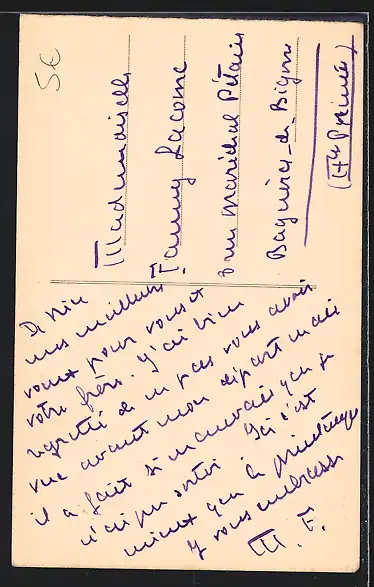 5€
Mademoiselle
Fanny Lacome
rue Maréchal Pétain
Bagnères-de-Bigorre
(Htes Pyrénées)
De Nice
mes meilleurs
voeux pour vous et
votre frère. J'ai bien
regretté de ne pas vous avoir
vue avant mon départ mais
il a fait si mauvais que je
n'ai pu sortir. Ici c'est
mieux que le printemps
Je vous embrasse
M. F.